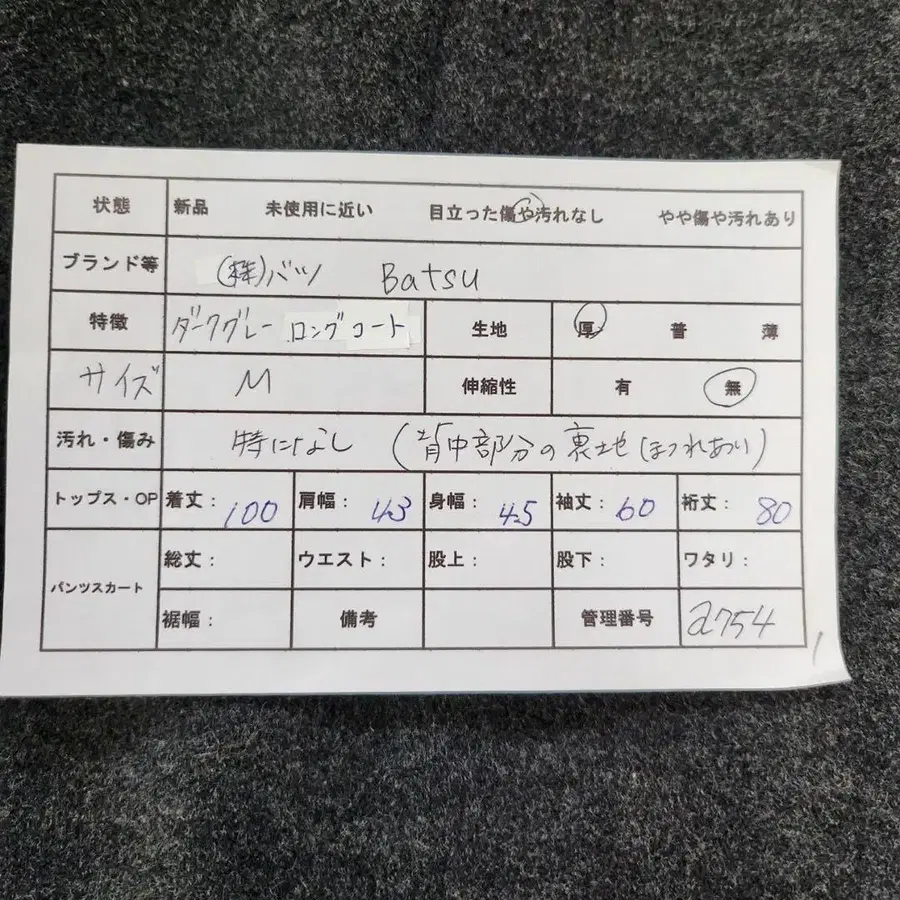 状態 新品 未使用に近い 目立った傷や汚れなし やや傷や汚れあり
ブランド等 (株)バツ Batsu
特徴 ダークグレー ロングコート 生地 厚 普 薄
サイズ M 伸縮性 有 無
汚れ・傷み 特になし (背中部分の裏地ほつれあり)
トップス・OP 着丈: 100 肩幅: 43 身幅: 45 袖丈: 60 裄丈: 80
パンツスカート 総丈: ウエスト: 股上: 股下: ワタリ:
裾幅: 備考 管理番号 a754